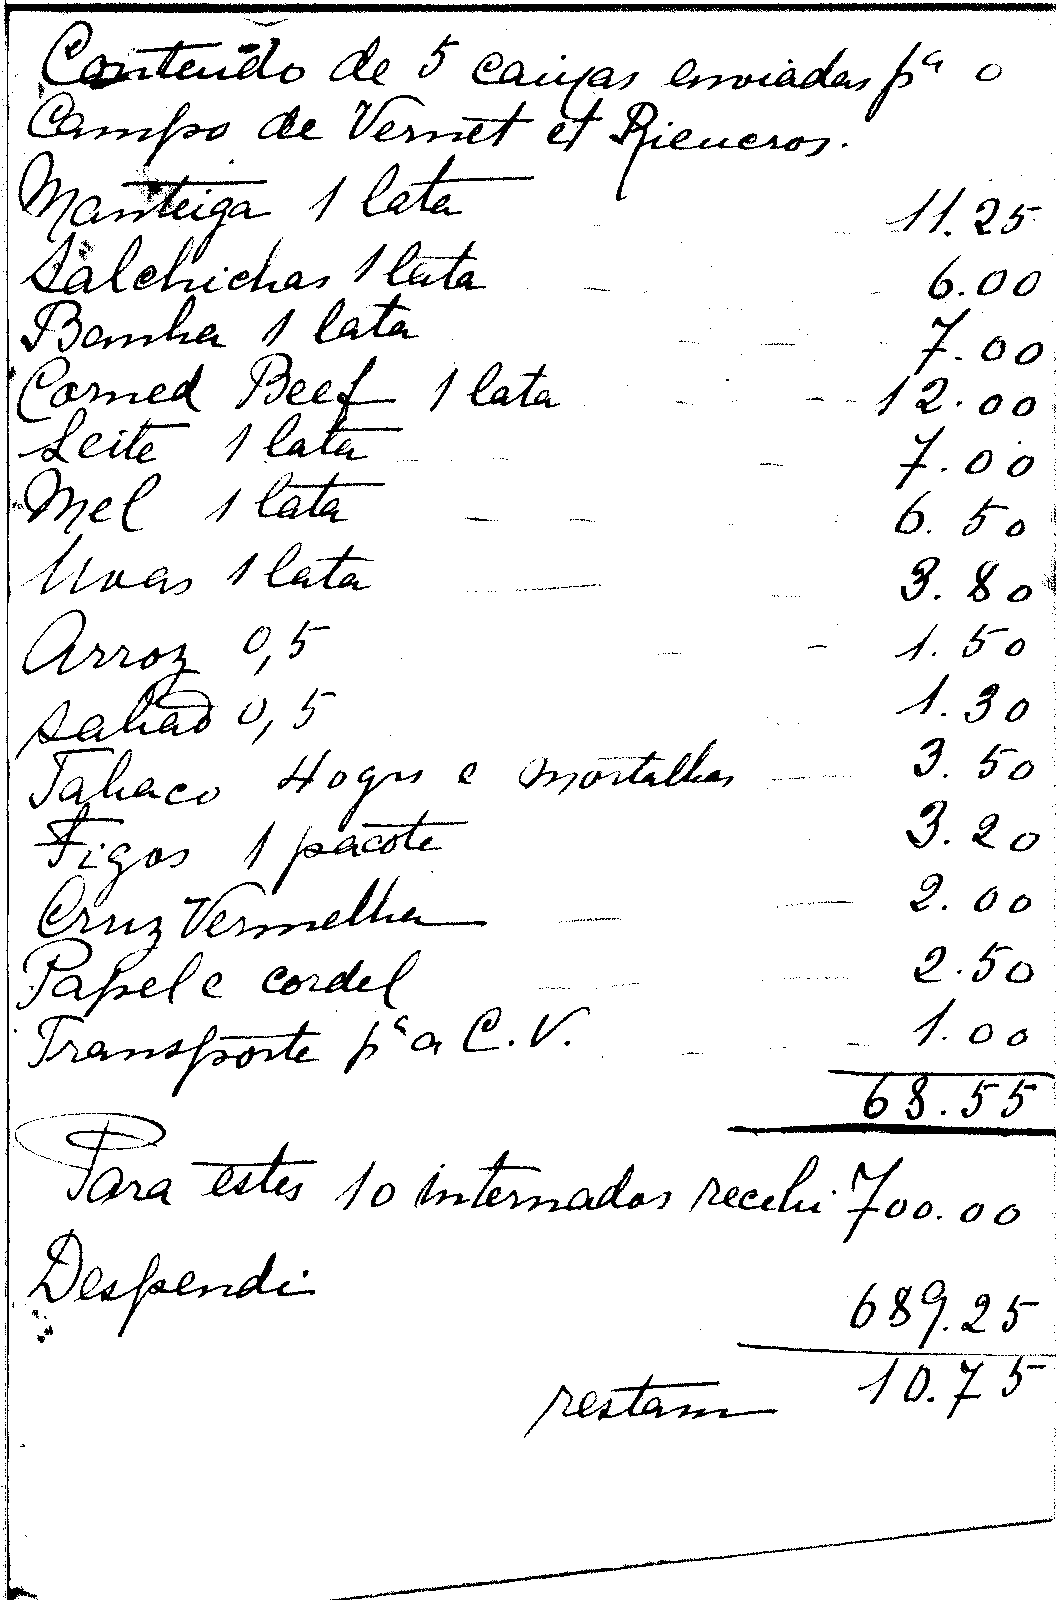 Conteudo de 5 caixas enviadas pª o
Campo de Vernet et Rieucros.
Manteiga 1 lata 11.25
Salchichas 1 lata 6.00
Banha 1 lata 7.00
Corned Beef 1 lata 12.00
Leite 1 lata 7.00
Mel 1 lata 6.50
Uvas 1 lata 3.80
Arroz 0,5 1.50
Sabaõ 0,5 1.30
Tabaco 40grs e mortalhas 3.50
Figos 1 pacote 3.20
Cruz Vermelha 2.00
Papel e cordel 2.50
Transporte pª a C.V. 1.00
68.55
Para estes 10 internados recebi 700.00
Despendi 689.25
restam 10.75